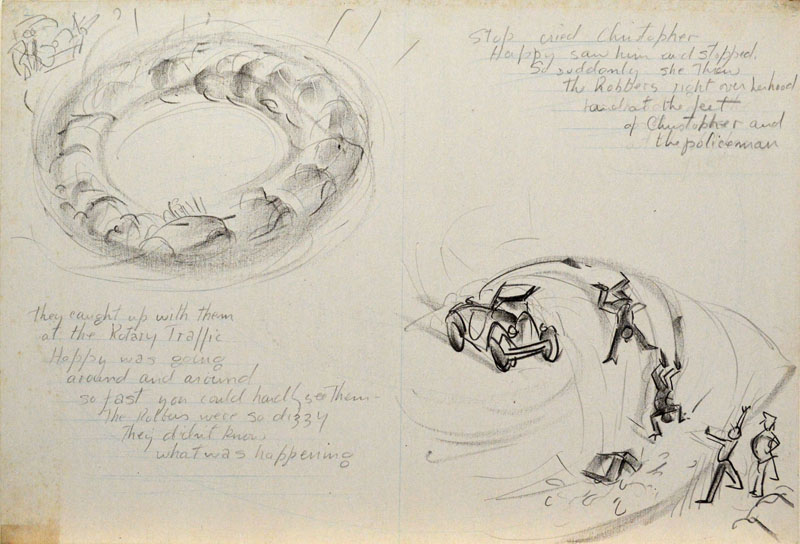 They caught up with them
at the Rotary Traffic
Happy was going
around and around
so fast you could hardly see them -
the Robbers were so dizzy
They didn't know
what was happening
Stop cried Christopher
Happy saw him and stopped.
So suddenly she threw
the Robbers right over her hood
at the feet
of Christopher and
the policeman